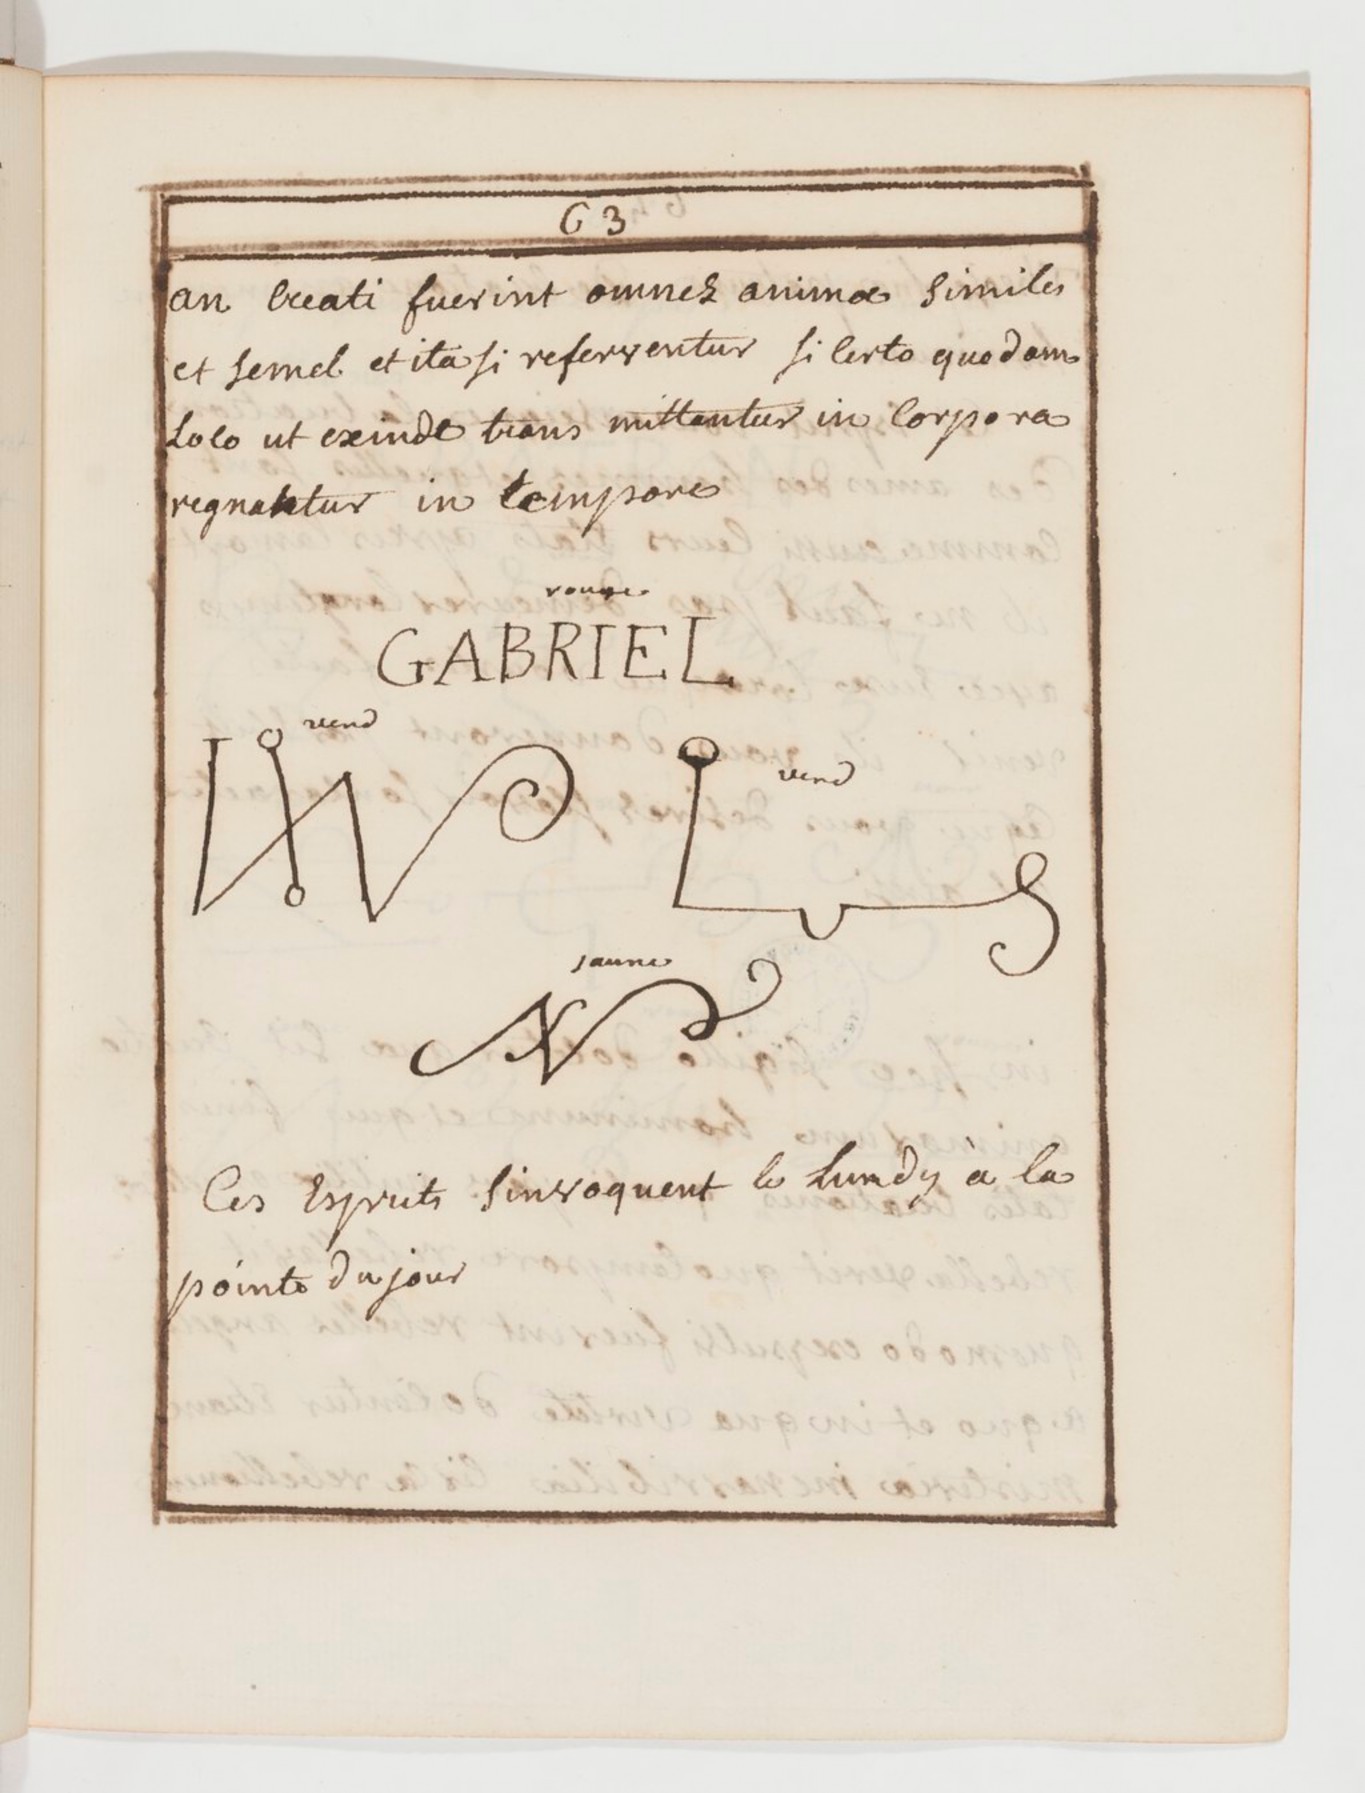 63
an creati fuerint omnes animæ similes
et semel et ita si reserventur si certo quodam
loco ut exinde trans mittantur in corpora
regnantur in tempore
rouge
GABRIEL
verd
verd
jaune
Ces Esprits sinvoquent le Lundy à la
pointe du jour